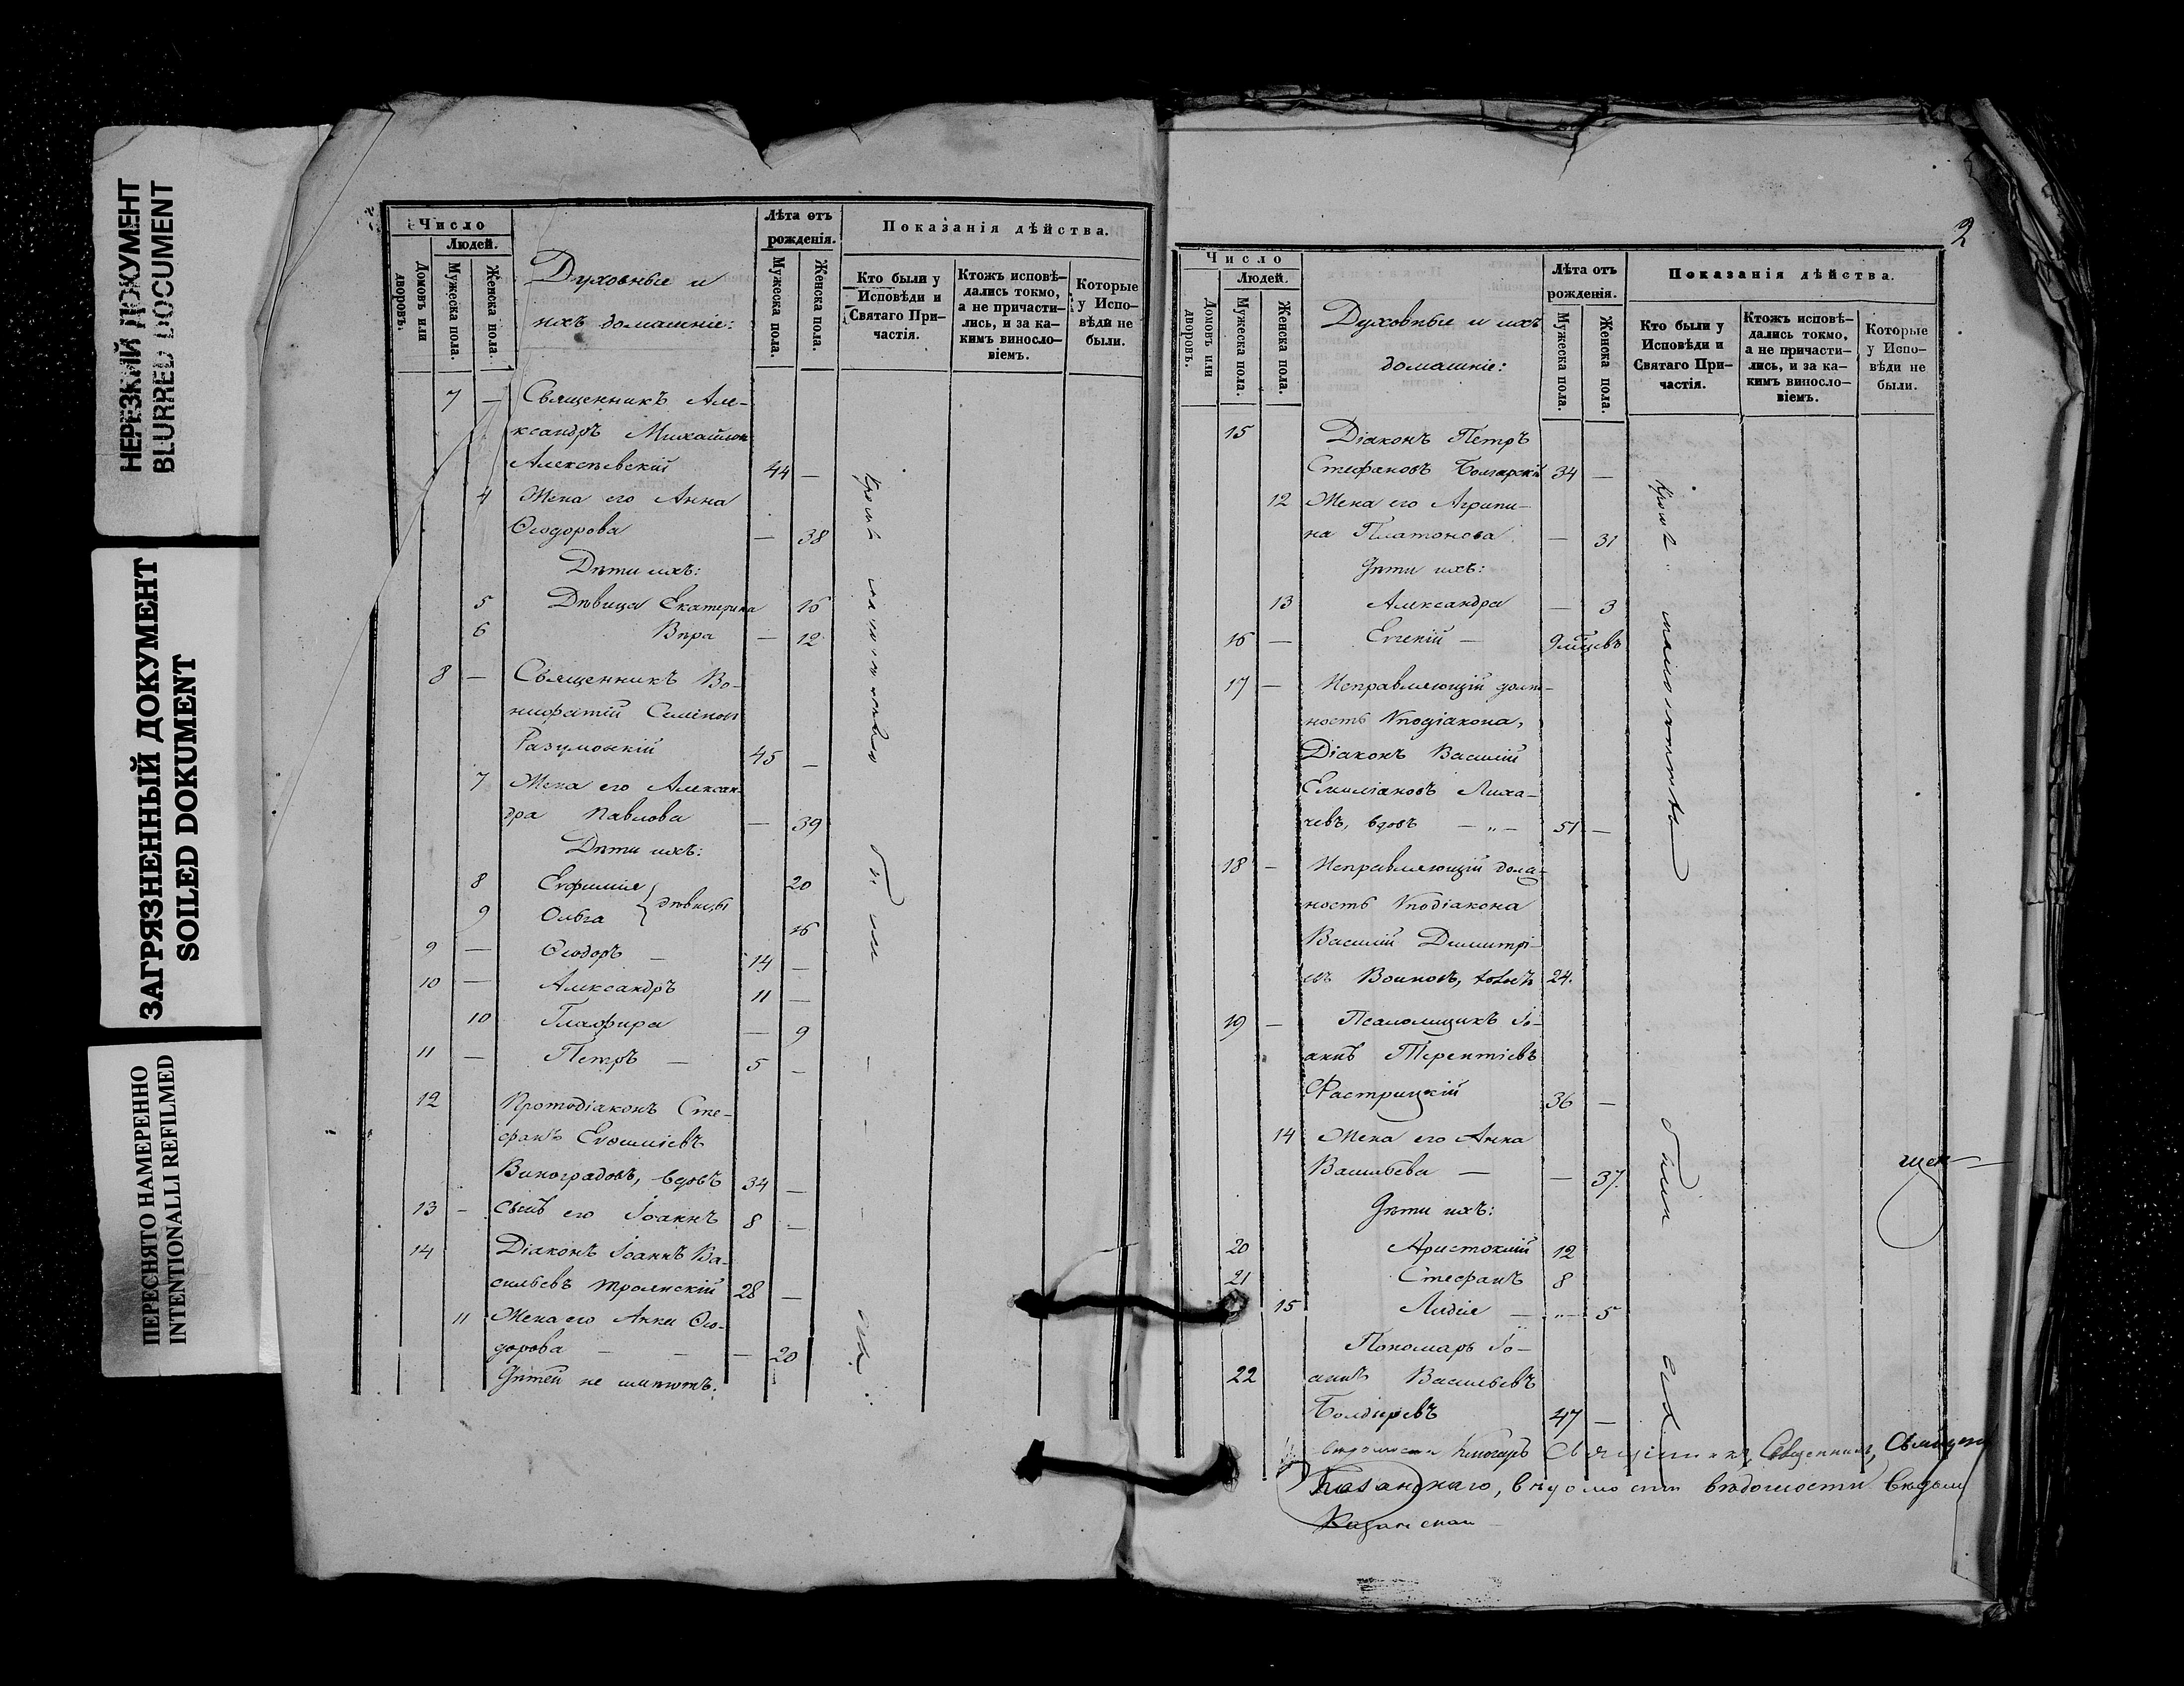 НЕРЕЗКИЙ ДОКУМЕНТ
BLURRED DOCUMENT
ЗАГРЯЗНЕННЫЙ ДОКУМЕНТ
SOILED DOKUMENT
ПЕРЕСНЯТО НАМЕРЕННО
INTENTIONALLI REFILMED
Число
Людей.
Домовъ или дворовъ.
Мужеска пола.
Женска пола.
Духовные и
ихъ домашніе:
Лѣта отъ
рожденія.
Мужеска пола.
Женска пола.
Показанія дѣйства.
Кто были у
Исповѣди и
Святаго При-
частія.
Ктожъ исповѣ-
дались токмо,
а не причасти-
лись, и за ка-
кимъ виносло-
віемъ.
Которые
у Испо-
вѣди не
были.
7 — Священникъ Але-
ксандръ Михайлов
Алексѣевскій 44 —
4 Жена его Анна
Ѳеодорова — 38
Дѣти ихъ:
5 Дѣвица Екатерина 16
6 Вѣра — 12
8 — Священникъ Во-
нифатій Семенов
Разумовскій 45 —
7 Жена его Алексан-
дра Павлова — 39
Дѣти ихъ:
8 Евфимія 20
дѣвицы
9 Ольга 16
9 — Ѳеодоръ — 14 —
10 — Александръ 11 —
10 Глафира — 9
11 — Петръ — 5 —
12 Протодіаконъ Сте-
фанъ Евѳиміевъ
Виноградовъ, вдовъ 34 —
13 — сынъ его Іоаннъ 8 —
14 Діаконъ Іоаннъ Ва-
сильевъ Троянскій 28 —
11 Жена его Анна Ѳео-
дорова — — — 20
Дѣтей не имѣютъ.
Кромѣ
были
2
Число
Людей.
Домовъ или дворовъ.
Мужеска пола.
Женска пола.
Духовные и ихъ
домашніе:
Лѣта отъ
рожденія.
Мужеска пола.
Женска пола.
Показанія дѣйства.
Кто были у
Исповѣди и
Святаго При-
частія.
Ктожъ исповѣ-
дались токмо,
а не причасти-
лись, и за ка-
кимъ виносло-
віемъ.
Которые
у Испо-
вѣди не
были.
15 Діаконъ Петръ
Стефановъ Болгарскій 34 —
12 Жена его Агрипи-
на Платонова — 31
Дѣти ихъ:
13 Александра — 3
16 — Евгеній —
17 — Исправляющій долж-
ность Ѵподіакона,
Діаконъ Василій
Емиліановъ Лиха-
чевъ, вдовъ — „ — 51 —
18 — Исправляющій долж-
ность Ѵподіакона
Василій Димитрі-
евъ Воиновъ, 24.
19 — Псаломщикъ Іо-
аннъ Терентіевъ
Растрицкій 36 —
14 Жена его Анна
Васильева — — 37.
Дѣти ихъ:
20 Аристоклій 12
21 Стефанъ 8
15 Лидія — „ — 5
Пономарь Іо-
22 аннъ Васильевъ
Болдыревъ 47 —
Кромѣ
были